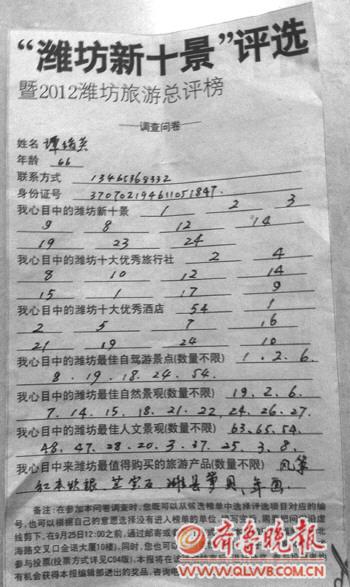 “潍坊新十景”评选
暨2012潍坊旅游总评榜
调查问卷
姓名
年龄 66
联系方式 13465368332
身份证号 370702194611051847.
我心目中的潍坊新十景 1 2 3
9 8 12 14
19 23 24
我心目中的潍坊十大优秀旅行社 2 4
8 10 12 14
15 1 17 9
我心目中的潍坊十大优秀酒店 54 1
2 5 7 16
21 19 24 10
我心目中的潍坊最佳自驾游景点(数量不限) 1.2.6.
8.19.18.24.54.
我心目中的潍坊最佳自然景观(数量不限) 19.2.6.
7.14.15.18.21.22.24.26.27.
我心目中的潍坊最佳人文景观(数量不限) 63.65.54.
48.47.28.20.3.37.25.3.8.
我心目中来潍坊最值得购买的旅游产品(数量不限) 风筝
红木嵌银 蓝宝石 潍县萝贝 年画
备注：在参加本问卷调查时，您既可以从候选榜单中选择评选项目对应的编
号，也可以根据自己的意愿选择没有进入榜单的单位
线剪下，在9月25日12:00之前，通过邮寄或
海路交叉口金诺大厦10楼)，同时，您也可以
参与投票(投票方式详见C04版)，本报将在
有机会获得本报编辑部送出的奖品，咨询电
齐鲁晚报网
QLWB.COM.CN